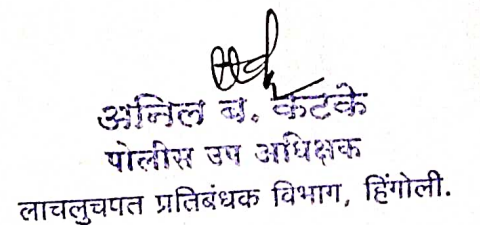 अनिल ब. कटके
पोलीस उप अधिक्षक
लाचलुचपत प्रतिबंधक विभाग, हिंगोली.